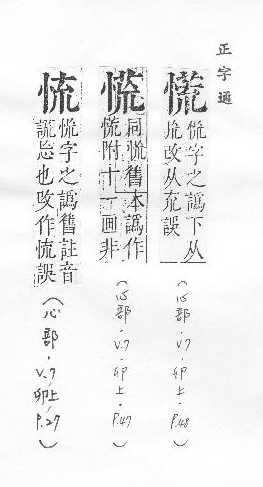 正字通
字之譌下从
改从㐬誤
（心部．V.7．卯上．P.48）
同 舊本譌作
慌附十一画非
（心部．V.7．卯上．P.47）
字之譌舊註音
謊忘也改作 誤
（心部．V.7．卯上．P.27）